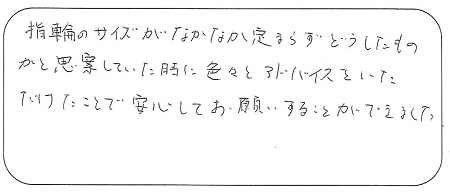 指輪のサイズがなかなか定まらずどうしたもの
かと思案していた時に色々とアドバイスをいた
だけたことで安心してお願いすることができました